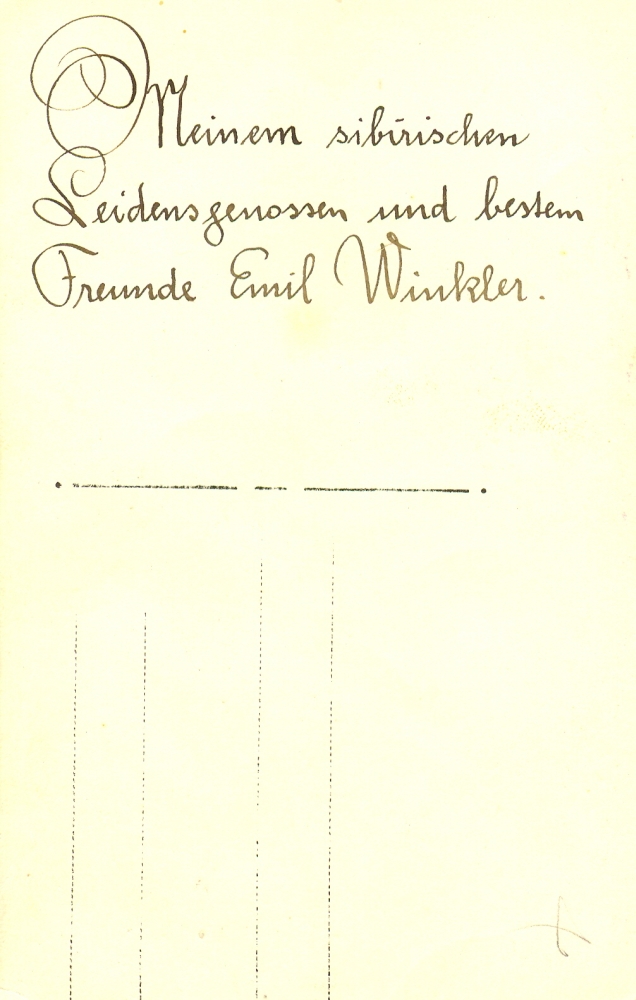 Meinem sibirischen
Leidensgenossen und bestem
Freunde Emil Winkler.